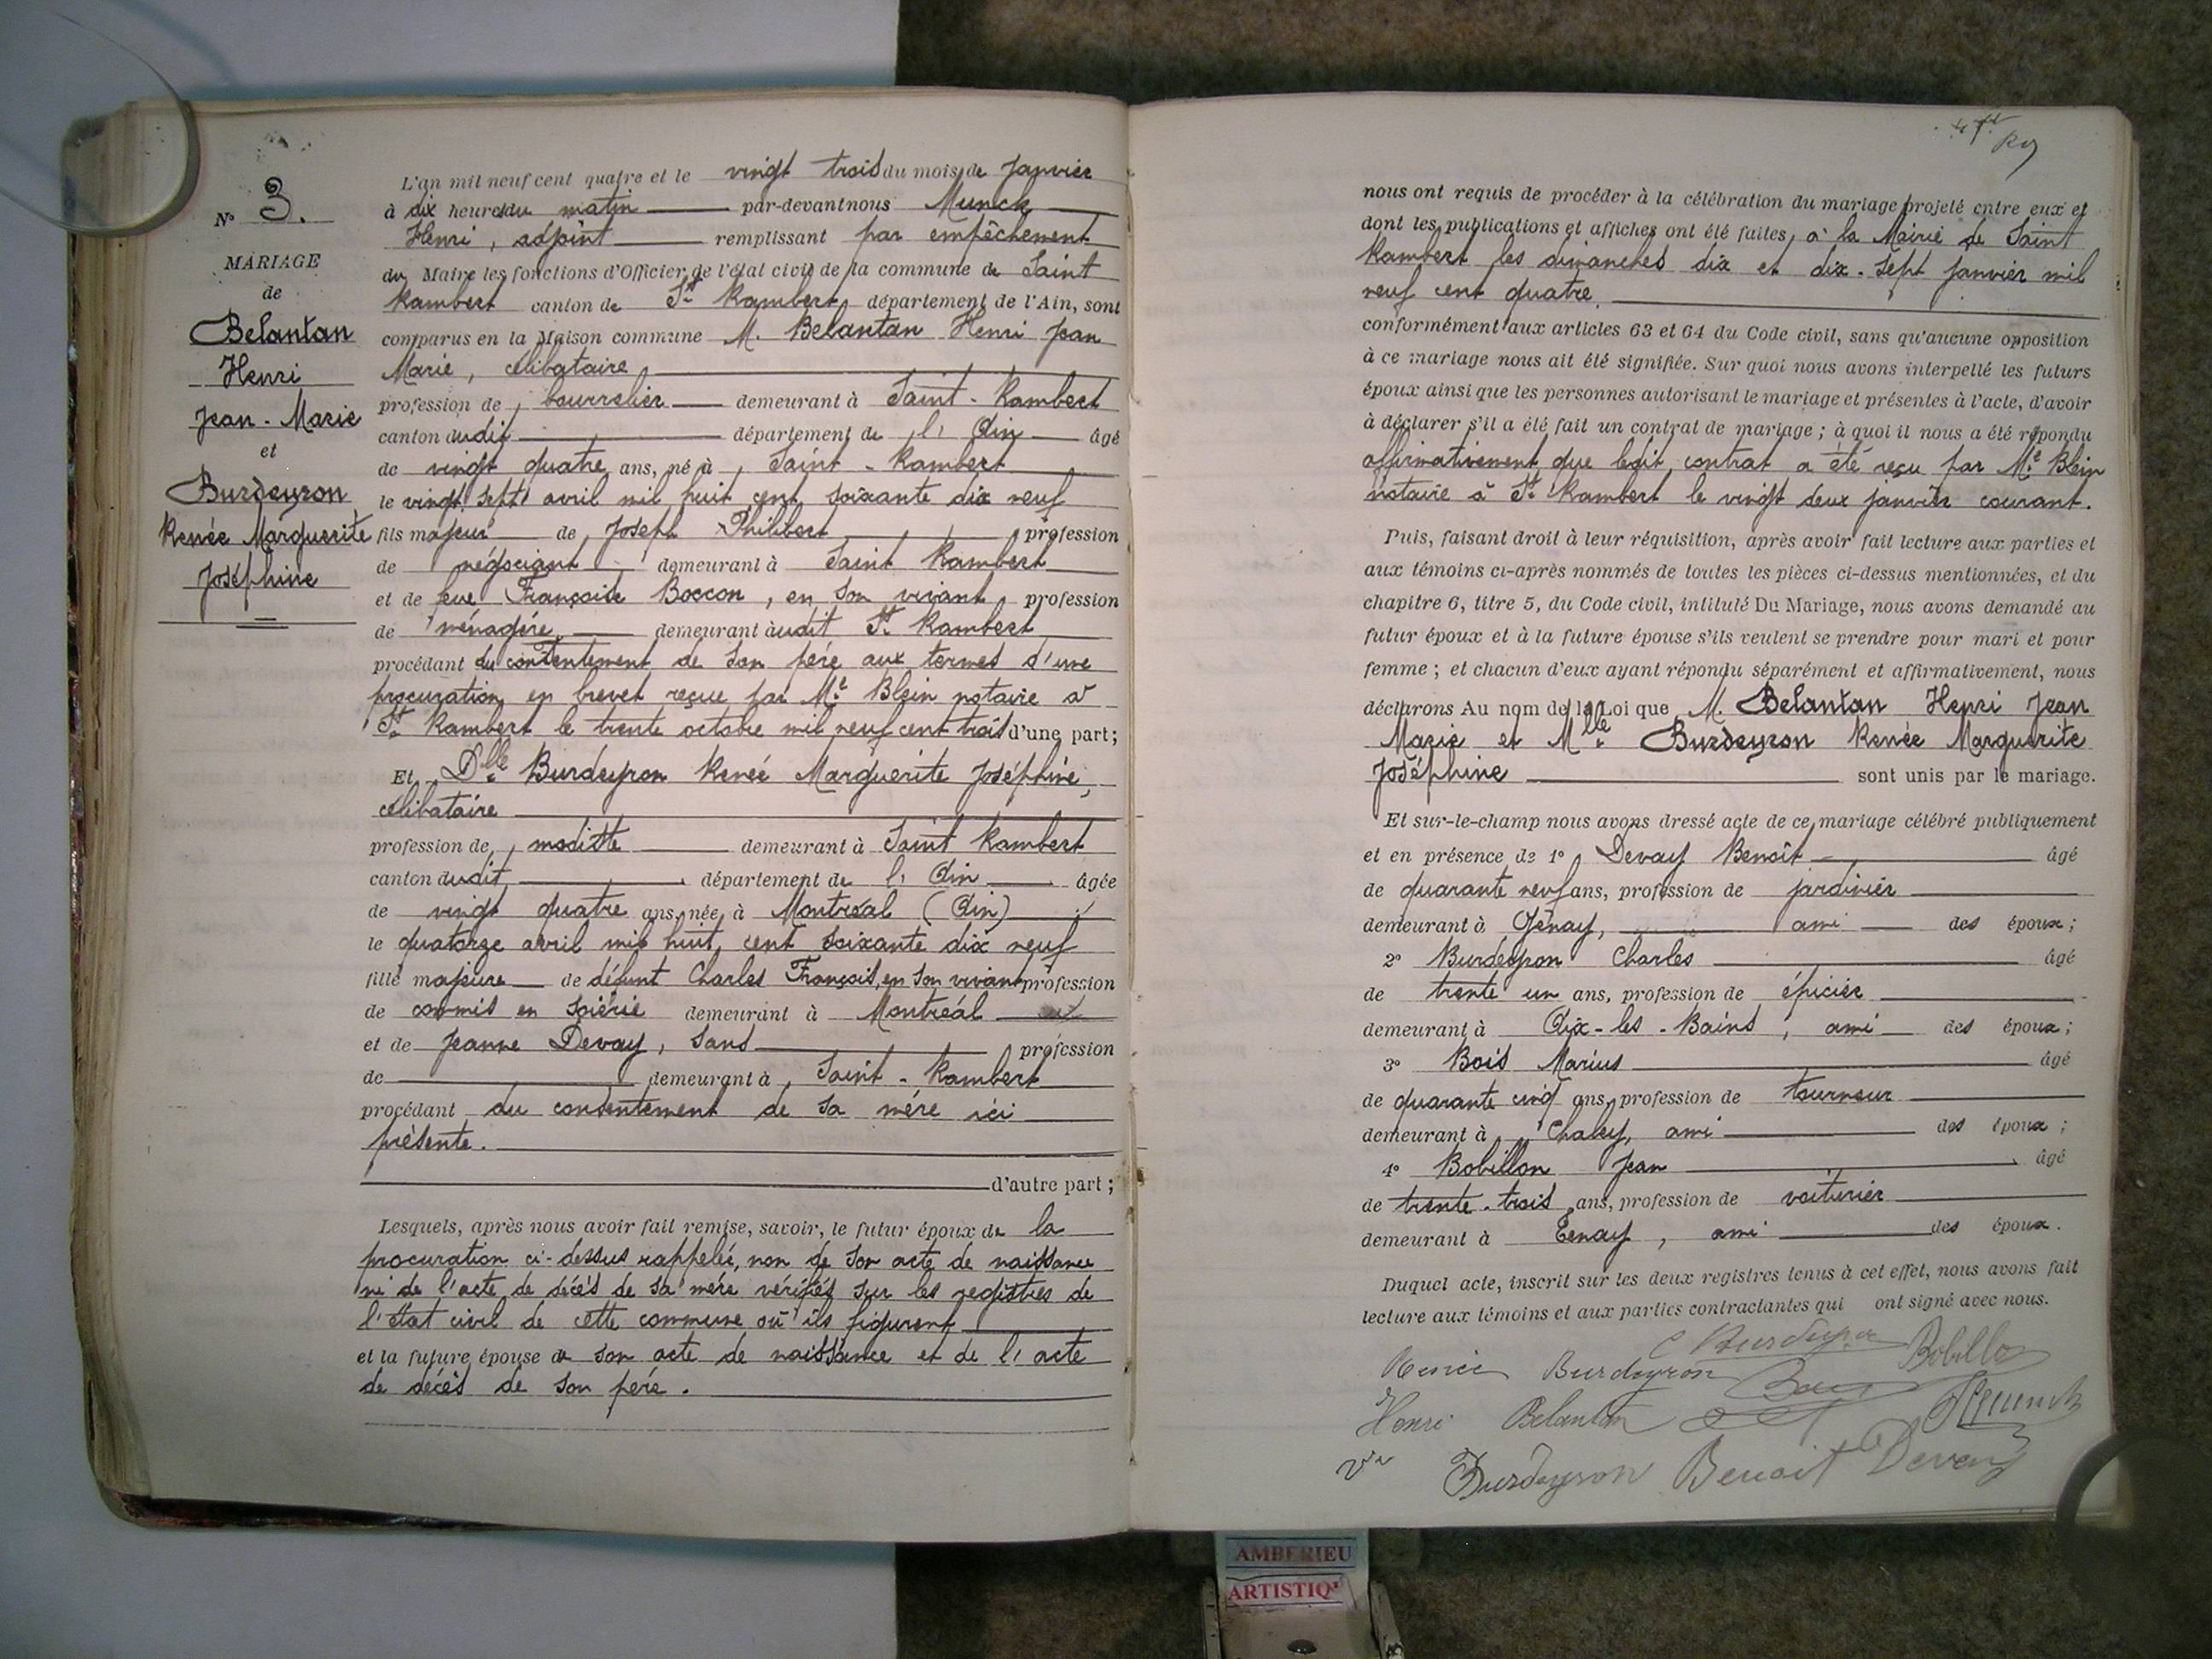 N° 3.
MARIAGE
de
Belantan
Henri
Jean-Marie
et
Burdeyron
Renée Marguerite
Joséphine
L'an mil neuf cent quatre et le vingt trois du mois de Janvier
à dix heures du matin par-devant nous Munck
Henri, adjoint remplissant par empêchement
du Maire les fonctions d'Officier de l'état civil de la commune de Saint
Rambert canton de St Rambert, département de l'Ain, sont
comparus en la Maison commune M. Belantan Henri Jean
Marie, célibataire
profession de bourrelier demeurant à Saint-Rambert
canton dudit département de l'Ain âgé
de vingt quatre ans, né à Saint-Rambert
le vingt sept avril mil huit cent soixante dix neuf
fils majeur de Joseph Philibert profession
de négociant demeurant à Saint Rambert
et de feue Françoise Boccon, en son vivant profession
de ménagère demeurant audit St Rambert
procédant du consentement de son père aux termes d'une
procuration en brevet reçue par Me Blein notaire à
St Rambert le trente octobre mil neuf cent trois d'une part;
Et Dlle Burdeyron Renée Marguerite Joséphine,
célibataire
profession de modiste demeurant à Saint Rambert
canton dudit département de l'Ain âgée
de vingt quatre ans, née à Montréal (Ain)
le quatorze avril mil huit cent soixante dix neuf
fille majeure de défunt Charles François, en son vivant profession
de commis en soierie demeurant à Montréal
et de Jeanne Devay, sans profession
de demeurant à Saint-Rambert
procédant du consentement de sa mère ici
présente.
d'autre part;
Lesquels, après nous avoir fait remise, savoir, le futur époux de la
procuration ci-dessus rappelée, non de son acte de naissance
ni de l'acte de décès de sa mère vérifiés sur les registres de
l'état civil de cette commune où ils figurent
et la future épouse de son acte de naissance et de l'acte
de décès de son père.
nous ont requis de procéder à la célébration du mariage projeté entre eux et
dont les publications et affiches ont été faites, à la Mairie de Saint
Rambert les dimanches dix et dix-sept janvier mil
neuf cent quatre
conformément aux articles 63 et 64 du Code civil, sans qu'aucune opposition
à ce mariage nous ait été signifiée. Sur quoi nous avons interpellé les futurs
époux ainsi que les personnes autorisant le mariage et présentes à l'acte, d'avoir
à déclarer s'il a été fait un contrat de mariage; à quoi il nous a été répondu
affirmativement que ledit contrat a été reçu par Me Blein
notaire à St Rambert le vingt deux janvier courant.
Puis, faisant droit à leur réquisition, après avoir fait lecture aux parties et
aux témoins ci-après nommés de toutes les pièces ci-dessus mentionnées, et du
chapitre 6, titre 5, du Code civil, intitulé Du Mariage, nous avons demandé au
futur époux et à la future épouse s'ils veulent se prendre pour mari et pour
femme; et chacun d'eux ayant répondu séparément et affirmativement, nous
déclarons Au nom de la Loi que M. Belantan Henri Jean
Marie et Mlle Burdeyron Renée Marguerite
Joséphine sont unis par le mariage.
Et sur-le-champ nous avons dressé acte de ce mariage célébré publiquement
et en présence de 1° Devay Benoit âgé
de quarante neuf ans, profession de jardinier
demeurant à Genay, ami des époux;
2° Burdeyron Charles âgé
de trente un ans, profession de épicier
demeurant à Aix-les-Bains, ami des époux;
3° Bois Marius âgé
de quarante cinq ans, profession de tourneur
demeurant à Chaley, ami des époux;
4° Bobillon Jean âgé
de trente-trois ans, profession de voiturier
demeurant à Tenay, ami des époux.
Duquel acte, inscrit sur les deux registres tenus à cet effet, nous avons fait
lecture aux témoins et aux parties contractantes qui ont signé avec nous.
C Burdeyron
Renée Burdeyron Bobillon
Henri Belantan HMunck
Vve Burdeyron Benoit Devay
AMBERIEU
ARTISTIQ'